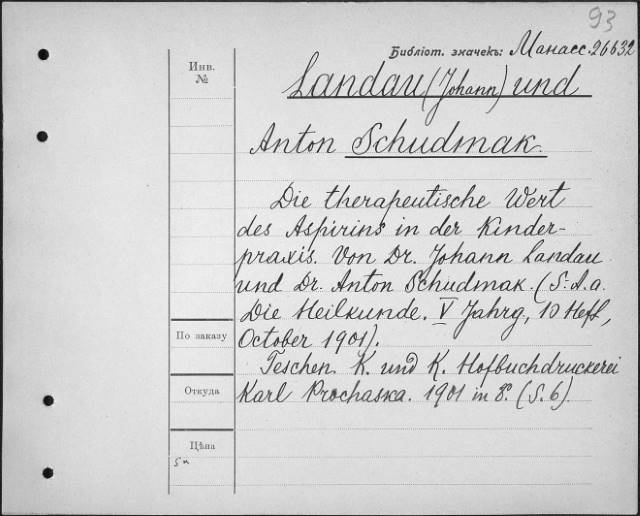 93
Библіот. значекъ: Манасс. 26632
Инв.
№
Landau (Johann) und
Anton Schudmak.
Die therapeutische Wert
des Aspirins in der Kinder-
praxis. Von Dr. Johann Landau
und Dr. Anton Schudmak. (S. A. a.
Die Heilkunde. V Jahrg, 10 Heft,
October 1901).
По заказу
Teschen. K. und K. Hofbuchdruckerei
Откуда
Karl Prochaska. 1901 in 8º. (S. 6).
Цѣна